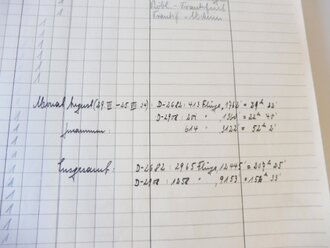 - Frankfurt
Frankf -
Monat August (29.VII - 25.VIII 34) : D-2682 : 413 Flüge, 1762' = 29h 22'
D-2908 : 201 " , 1360' = 22h 40'
zusammen : 614 " , 3122' = 52h 2'
Insgesamt : D-2682 : 2965 Flüge, 12445' = 207h 25'
D-2908 : 1258 " , 9153' = 152h 33'